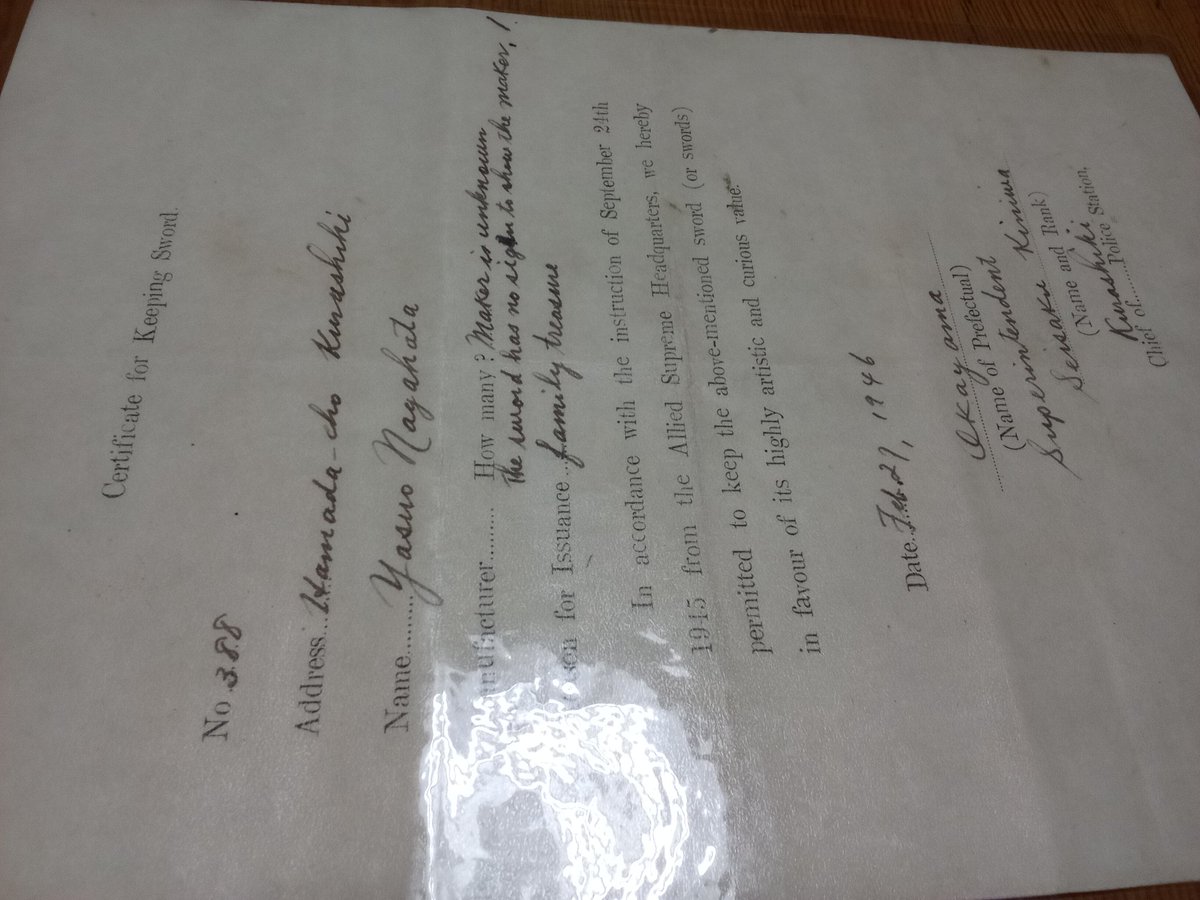 Certificate for Keeping Sword.
No. 388
Address... Hamada-cho Kurashiki
Name......... Yasuo Nagahata
anufacturer......... How many? Maker is unknown
The sword has no sign to show the maker, 1
son for Issuance... family treasure
In accordance with the instruction of September 24th
1945 from the Allied Supreme Headquarters, we hereby
permitted to keep the above-mentioned sword (or swords)
in favour of its highly artistic and curious value.
Date... Feb. 27, 1946
Okayama
(Name of Prefectual)
Superintendent Kiniwa
Seisaku
(Name and Rank)
Kurashiki
Chief of........Police Station.